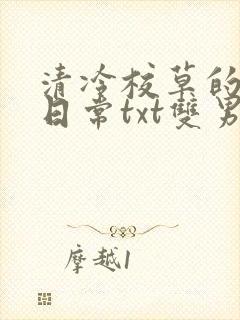 清冷校草的
日常txt雙男
摩越1